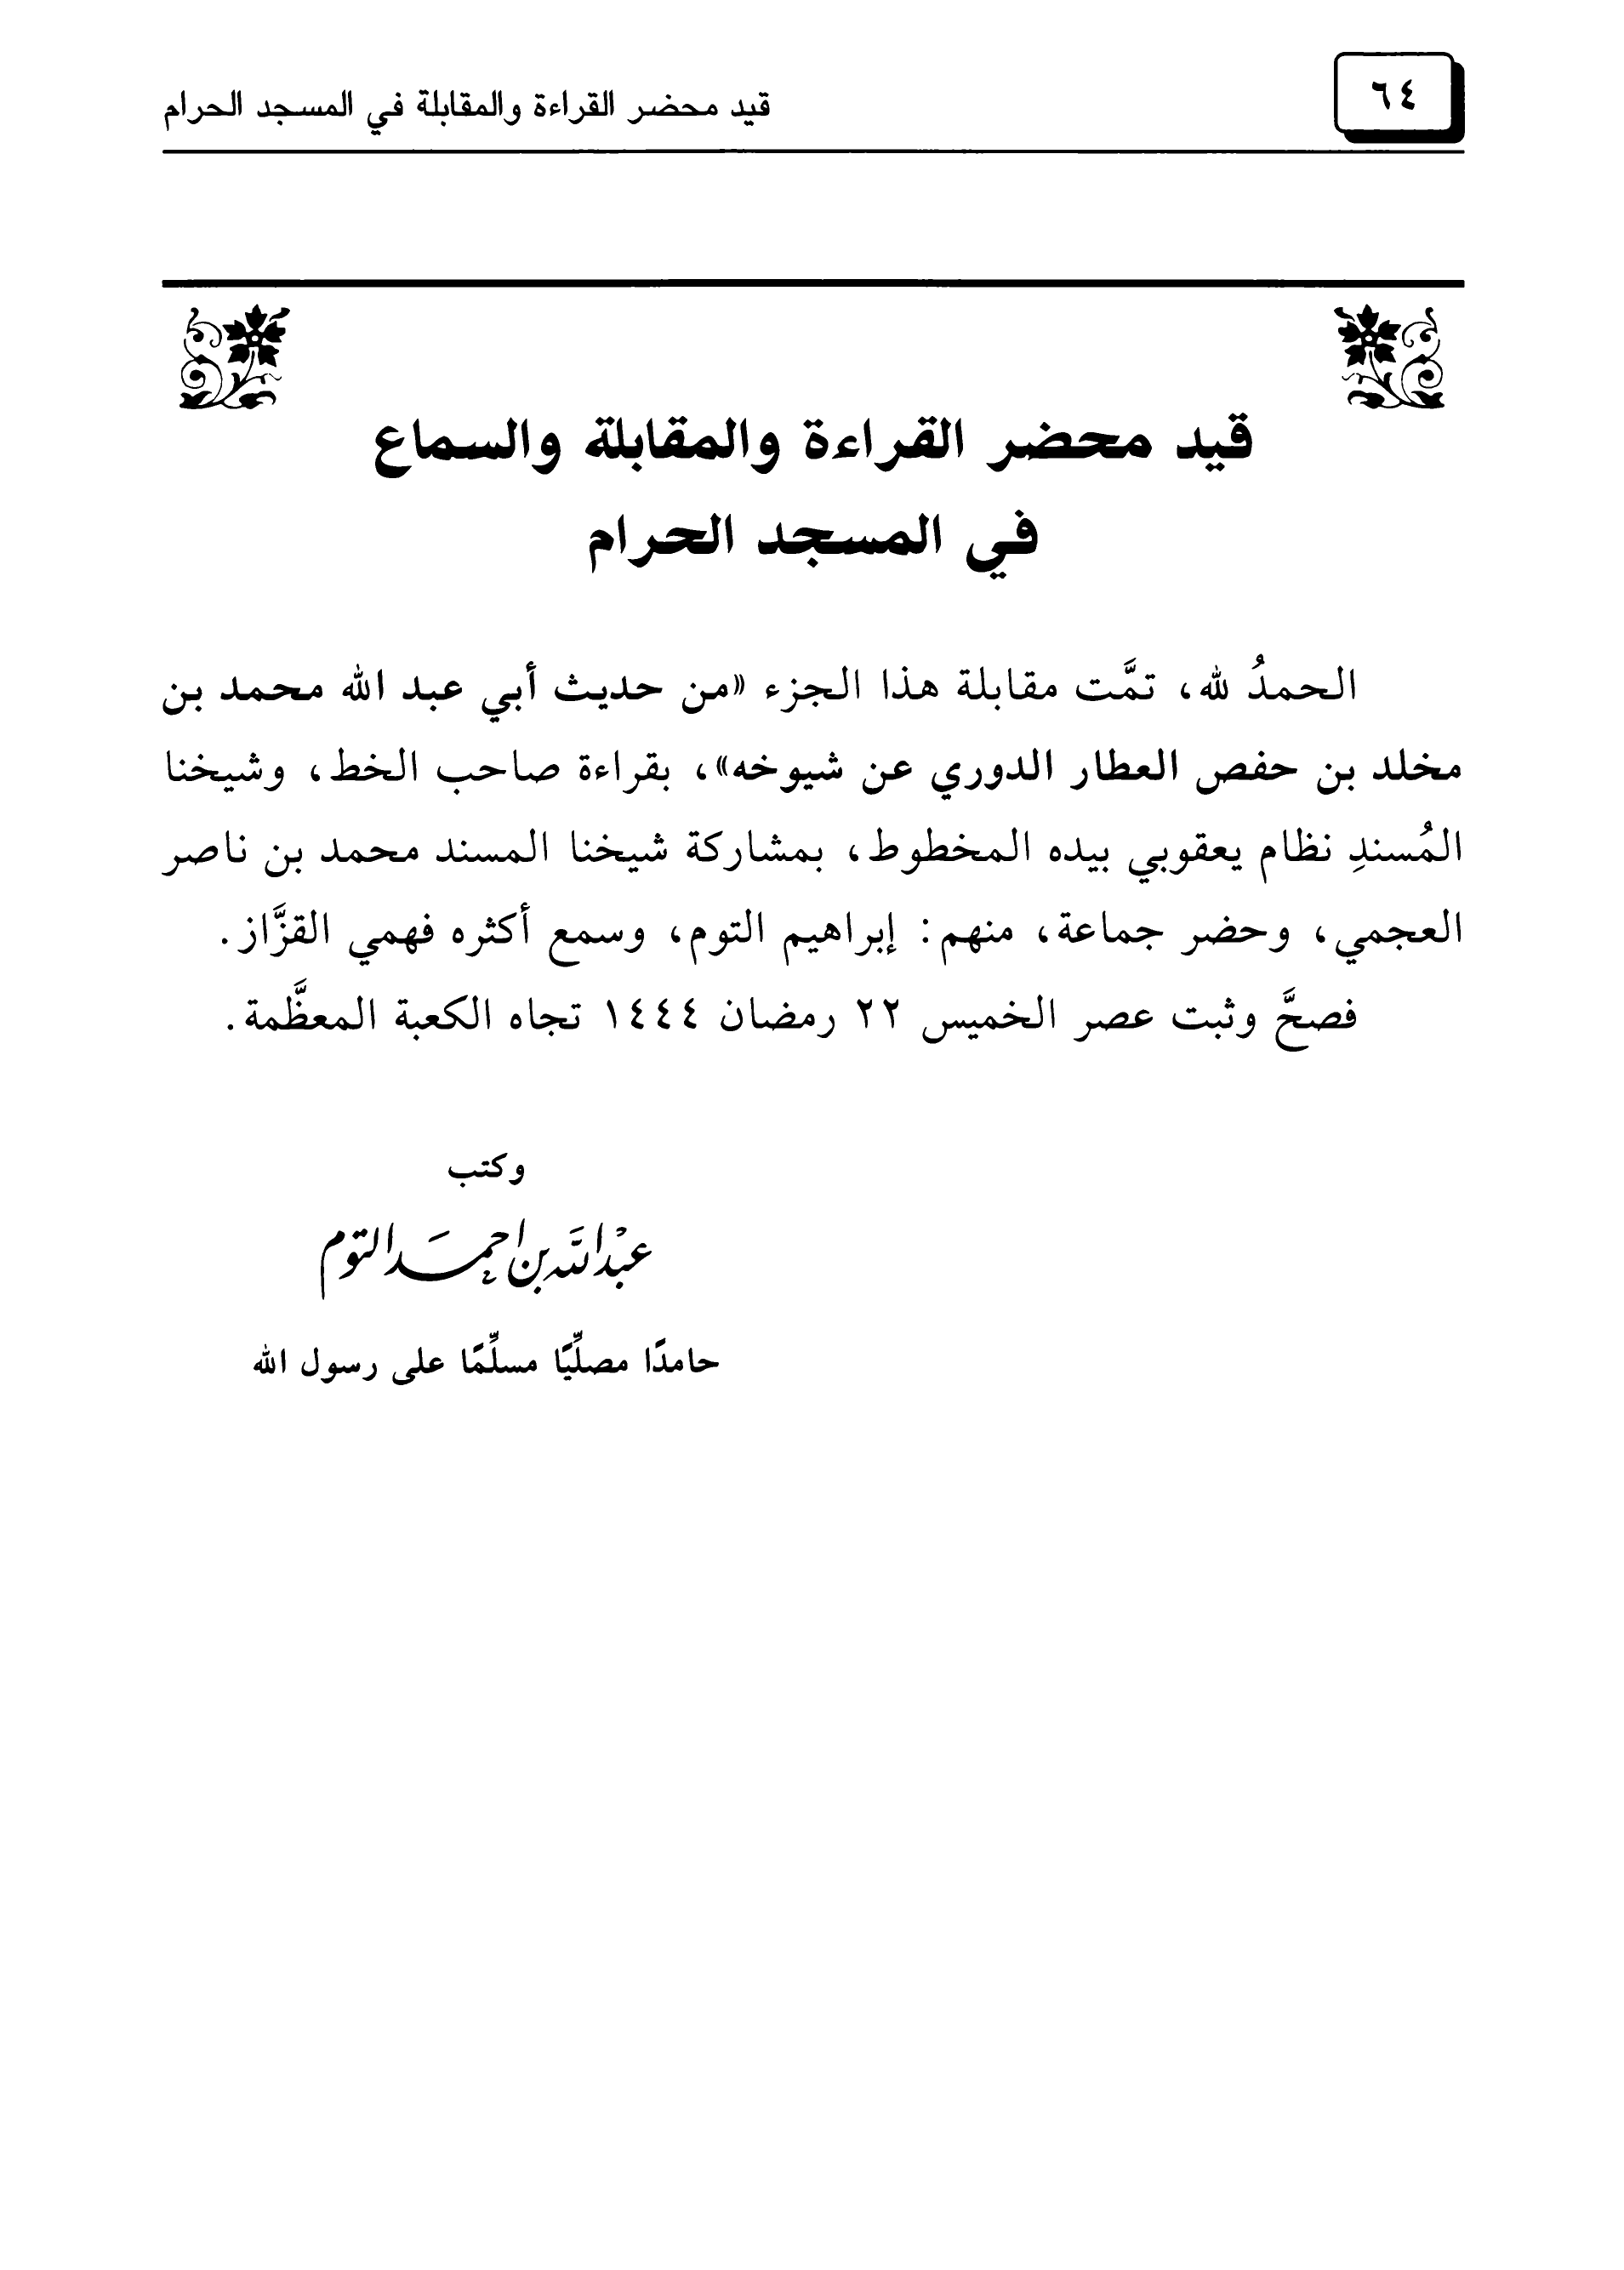 ٦٤
قيد محضر القراءة والمقابلة في المسجد الحرام
قيد محضر القراءة والمقابلة والسماع
في المسجد الحرام
الحمدُ لله، تمَّت مقابلة هذا الجزء «من حديث أبي عبد الله محمد بن
مخلد بن حفص العطار الدوري عن شيوخه»، بقراءة صاحب الخط، وشيخنا
المُسندِ نظام يعقوبي بيده المخطوط، بمشاركة شيخنا المسند محمد بن ناصر
العجمي، وحضر جماعة، منهم: إبراهيم التوم، وسمع أكثره فهمي القزَّاز.
فصحَّ وثبت عصر الخميس ٢٢ رمضان ١٤٤٤ تجاه الكعبة المعظَّمة.
وكتب
عبْد اللَّه بن احمَد التوم
حامدًا مصلِّيًا مسلِّمًا على رسول الله